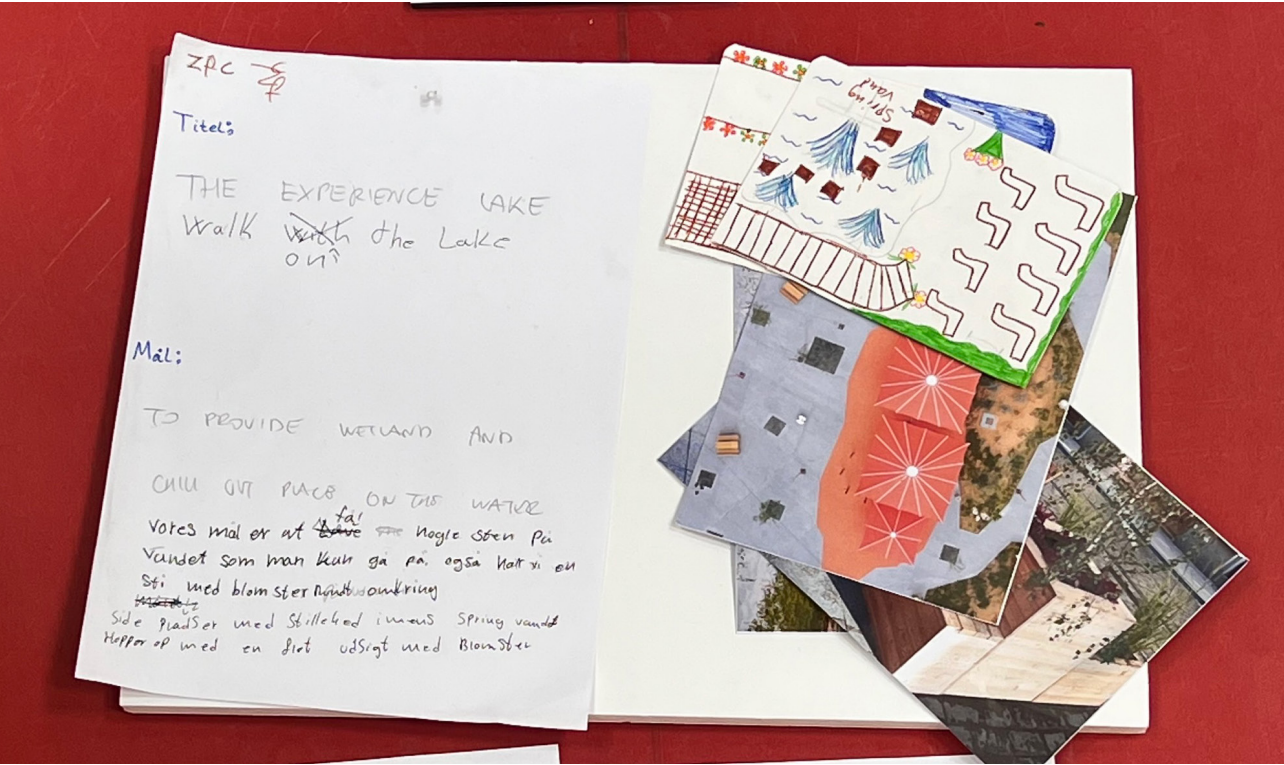 ZPC
Titel:
THE EXPERIENCE LAKE
Walk with the Lake
on
Mål:
TO PROVIDE WETLAND AND
CHILL OUT PLACE ON THE WATER
få
Vores mål er at Lave nogle sten på
Vandet som man kun gå på, også har vi en
Sti med blomster rundt omkring
Side pladser med Stillehed imens Spring vandt
Hopper op med en flot udsigt med Blomster
Spring
vand